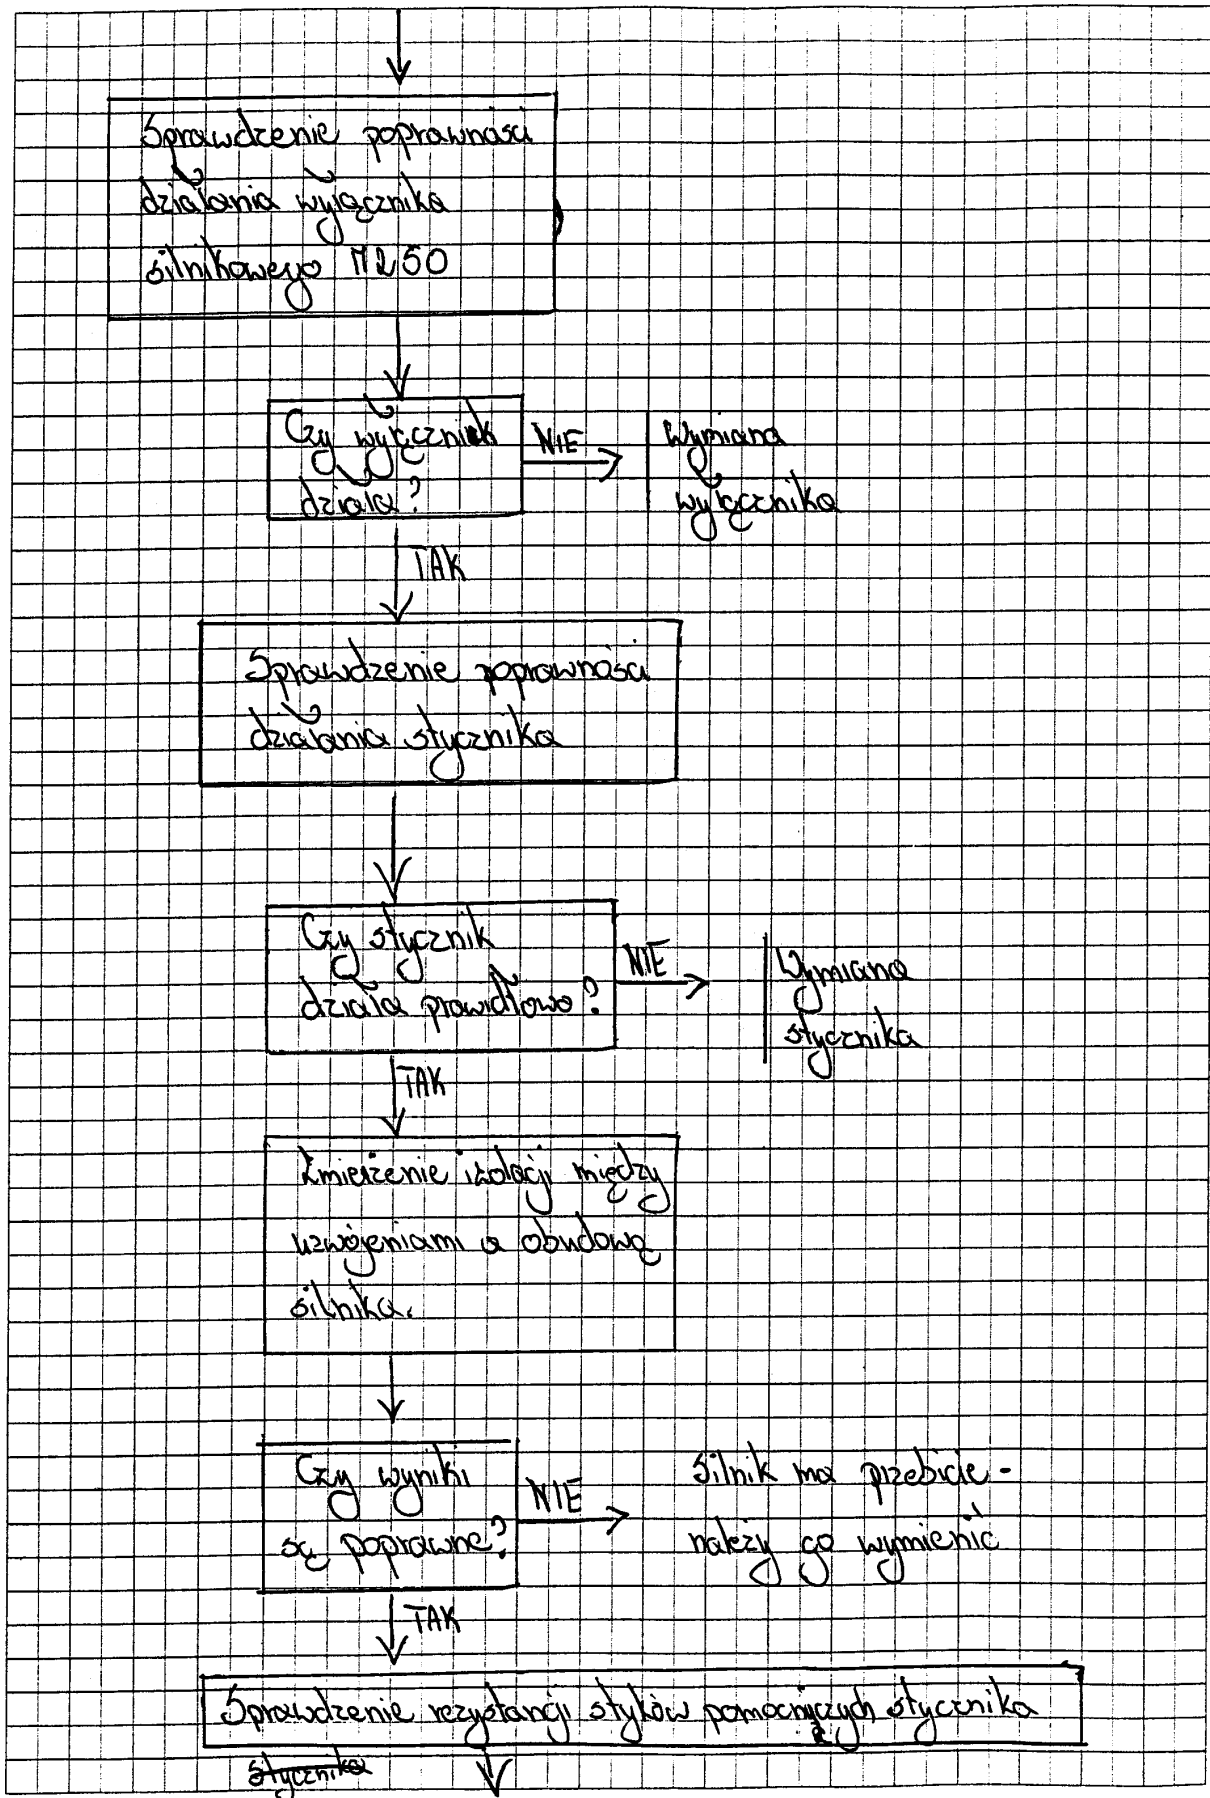 Sprawdzenie poprawności
działania wyłącznika
silnikowego M250
Czy wyłącznik
działa?
NIE
Wymiana
wyłącznika
TAK
Sprawdzenie poprawności
działania stycznika
Czy stycznik
działa prawidłowo?
NIE
Wymiana
stycznika
TAK
Zmierzenie izolacji między
uzwojeniami a obudową
silnika.
Czy wyniki
są poprawne?
NIE
Silnik ma przebicie -
należy go wymienić
TAK
Sprawdzenie rezystancji styków pomocniczych stycznika
stycznika